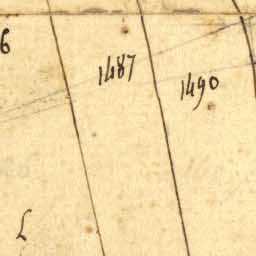 6
1487
1490
L